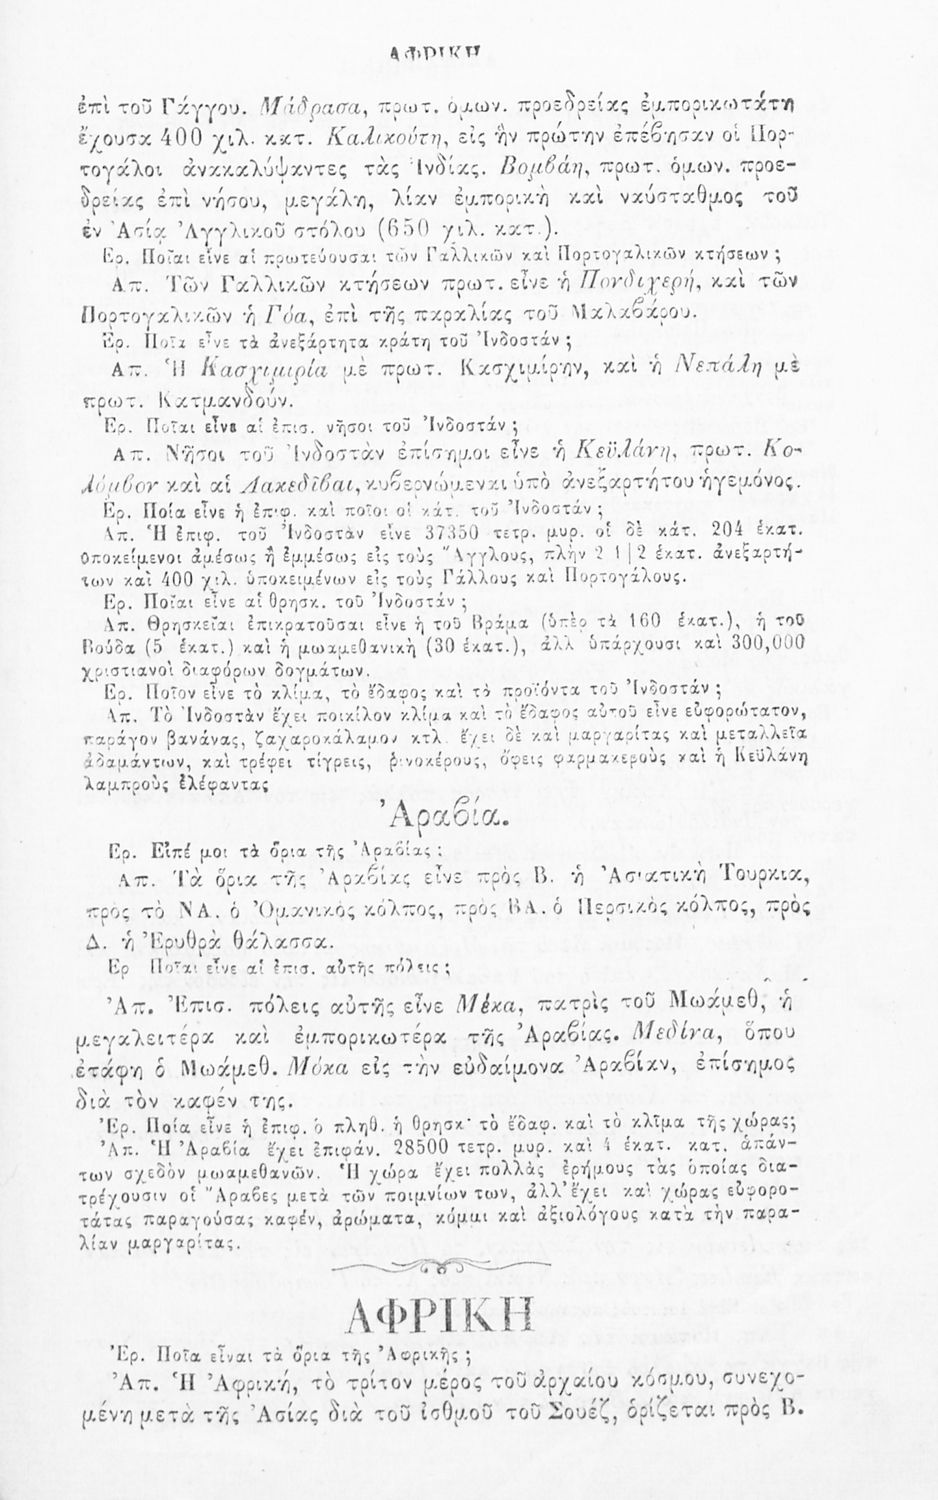 ΑΦΡΙΚΗ
ἐπὶ τοῦ Γάγγου. Μάδρασα, πρωτ. ὁμων. προεδρείας ἐμπορικωτάτη
ἔχουσα 400 χιλ. κατ. Καλικούτη, εἰς ἣν πρώτην ἐπέβησαν οἱ Πορ-
τογάλοι ἀνακαλύψαντες τὰς Ἰνδίας. Βομβάη, πρωτ. ὁμων. προε-
δρείας ἐπὶ νήσου, μεγάλη, λίαν ἐμπορικὴ καὶ ναύσταθμος τοῦ
ἐν Ἀσίᾳ Ἀγγλικοῦ στόλου (650 χιλ. κατ.).
Ερ. Ποῖαι εἶνε αἱ πρωτεύουσαι τῶν Γαλλικῶν καὶ Πορτογαλικῶν κτήσεων ;
Απ. Τῶν Γαλλικῶν κτήσεων πρωτ. εἶνε ἡ Πονδιχερή, καὶ τῶν
Πορτογαλικῶν ἡ Γόα, ἐπὶ τῆς παραλίας τοῦ Μαλαβάρου.
Ερ. Ποῖα εἶνε τὰ ἀνεξάρτητα κράτη τοῦ Ἰνδοστάν ;
Απ. Ἡ Κασχιμιρία μὲ πρωτ. Κασχιμίρην, καὶ ἡ Νεπάλη μὲ
πρωτ. Κατμανδούν.
Ερ. Ποῖαι εἶνε αἱ ἐπισ. νῆσοι τοῦ Ἰνδοστάν ;
Απ. Νῆσοι τοῦ Ἰνδοστὰν ἐπίσημοι εἶνε ἡ Κεϋλάνη, πρωτ. Κο-
λόμβον καὶ αἱ Λακεδῖβαι, κυβερνώμεναι ὑπὸ ἀνεξαρτήτου ἡγεμόνος.
Ερ. Ποία εἶνε ἡ ἐπιφ. καὶ ποῖοι οἱ κάτ. τοῦ Ἰνδοστάν ;
Απ. Ἡ ἐπιφ. τοῦ Ἰνδοστὰν εἶνε 37350 τετρ. μυρ. οἱ δὲ κάτ. 204 ἑκατ.
ὑποκείμενοι ἀμέσως ἢ ἐμμέσως εἰς τοὺς Ἄγγλους, πλὴν 2 1|2 ἑκατ. ἀνεξαρτή-
των καὶ 400 χιλ. ὑποκειμένων εἰς τοὺς Γάλλους καὶ Πορτογάλους.
Ερ. Ποῖαι εἶνε αἱ θρησκ. τοῦ Ἰνδοστάν ;
Απ. Θρησκεῖαι ἐπικρατοῦσαι εἶνε ἡ τοῦ Βράμα (ὑπὲρ τὰ 160 ἑκατ.), ἡ τοῦ
Βούδα (5 ἑκατ.) καὶ ἡ μωαμεθανικὴ (30 ἑκατ.), ἀλλ ὑπάρχουσι καὶ 300,000
χριστιανοὶ διαφόρων δογμάτων.
Ερ. Ποῖον εἶνε τὸ κλίμα, τὸ ἔδαφος καὶ τὰ προϊόντα τοῦ Ἰνδοστάν ;
Απ. Τὸ Ἰνδοστὰν ἔχει ποικίλον κλίμα καὶ τὸ ἔδαφος αὐτοῦ εἶνε εὐφορώτατον,
παράγον βανάνας, ζαχαροκάλαμον κτλ. ἔχει δὲ καὶ μαργαρίτας καὶ μεταλλεῖα
ἀδαμάντων, καὶ τρέφει τίγρεις, ῥινοκέρους, ὄφεις φαρμακεροὺς καὶ ἡ Κεϋλάνη
λαμπροὺς ἐλέφαντας
Ἀραβία.
Ερ. Εἰπέ μοι τὰ ὅρια τῆς Ἀραβίας ;
Απ. Τὰ ὅρια τῆς Ἀραβίας εἶνε πρὸς Β. ἡ Ἀσιατικὴ Τουρκια,
πρὸς τὸ ΝΑ. ὁ Ὀμανικὸς κόλπος, πρὸς ΒΑ. ὁ Περσικὸς κόλπος, πρὸς
Δ. ἡ Ἐρυθρὰ θάλασσα.
Ερ Ποῖαι εἶνε αἱ ἐπισ. αὐτῆς πόλεις ;
Ἀπ. Ἐπισ. πόλεις αὐτῆς εἶνε Μέκα, πατρὶς τοῦ Μωάμεθ, ἡ
μεγαλειτέρα καὶ ἐμπορικωτέρα τῆς Ἀραβίας. Μεδίνα, ὅπου
ἐτάφη ὁ Μωάμεθ. Μόκα εἰς τὴν εὐδαίμονα Ἀραβίαν, ἐπίσημος
διὰ τὸν καφέν της.
Ἐρ. Ποία εἶνε ἡ ἐπιφ. ὁ πληθ. ἡ θρησκ· τὸ ἔδαφ. καὶ τὸ κλῖμα τῆς χώρας;
Ἀπ. Ἡ Ἀραβία ἔχει ἐπιφάν. 28500 τετρ. μυρ. καὶ 4 ἑκατ. κατ. ἁπάν-
των σχεδὸν μωαμεθανῶν. Ἡ χώρα ἔχει πολλὰς ἐρήμους τὰς ὁποίας δια-
τρέχουσιν οἱ Ἄραβες μετὰ τῶν ποιμνίων των, ἀλλ' ἔχει καὶ χώρας εὐφορο-
τάτας παραγούσας καφέν, ἀρώματα, κόμμι καὶ ἀξιολόγους κατὰ τὴν παρα-
λίαν μαργαρίτας.
ΑΦΡΙΚΗ
Ἐρ. Ποῖα εἶναι τὰ ὅρια τῆς Ἀφρικῆς ;
Ἀπ. Ἡ Ἀφρική, τὸ τρίτον μέρος τοῦ ἀρχαίου κόσμου, συνεχο-
μένη μετὰ τῆς Ἀσίας διὰ τοῦ ἰσθμοῦ τοῦ Σουέζ, ὁρίζεται πρὸς Β.